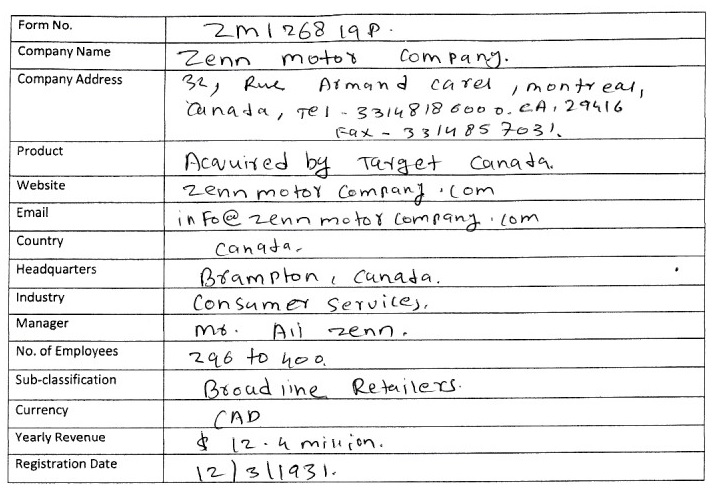 Form No. 2M1268 19P.
Company Name Zenn motor company.
Company Address 32, Rue Armand carel, montreal,
Canada, Tel - 33148186000. CA, 29416
Fax - 3314857031.
Product Acquired by Target Canada.
Website zennmotorcompany.com
Email info@zennmotorcompany.com
Country Canada.
Headquarters Brampton, Canada.
Industry Consumer Services.
Manager mr. Ali zenn.
No. of Employees 296 to 400.
Sub-classification Broadline Retailers.
Currency CAD
Yearly Revenue $ 12.4 million.
Registration Date 12/3/1931.